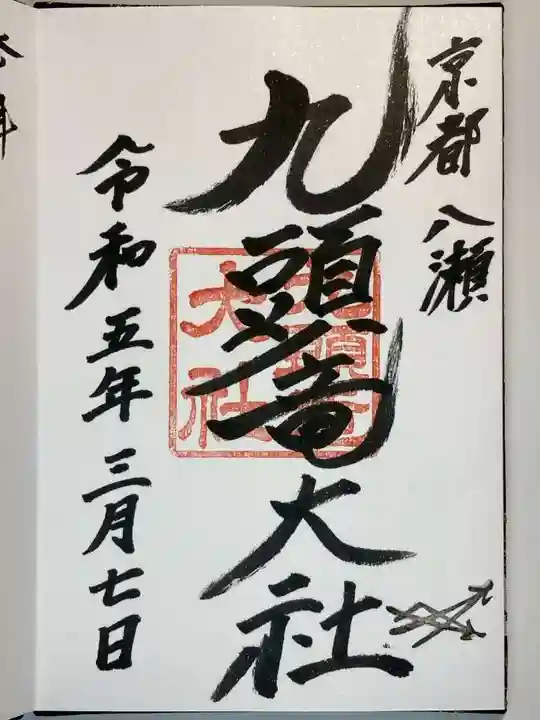 京都 八瀬
九頭竜大社
九頭竜
大社
令和五年三月七日